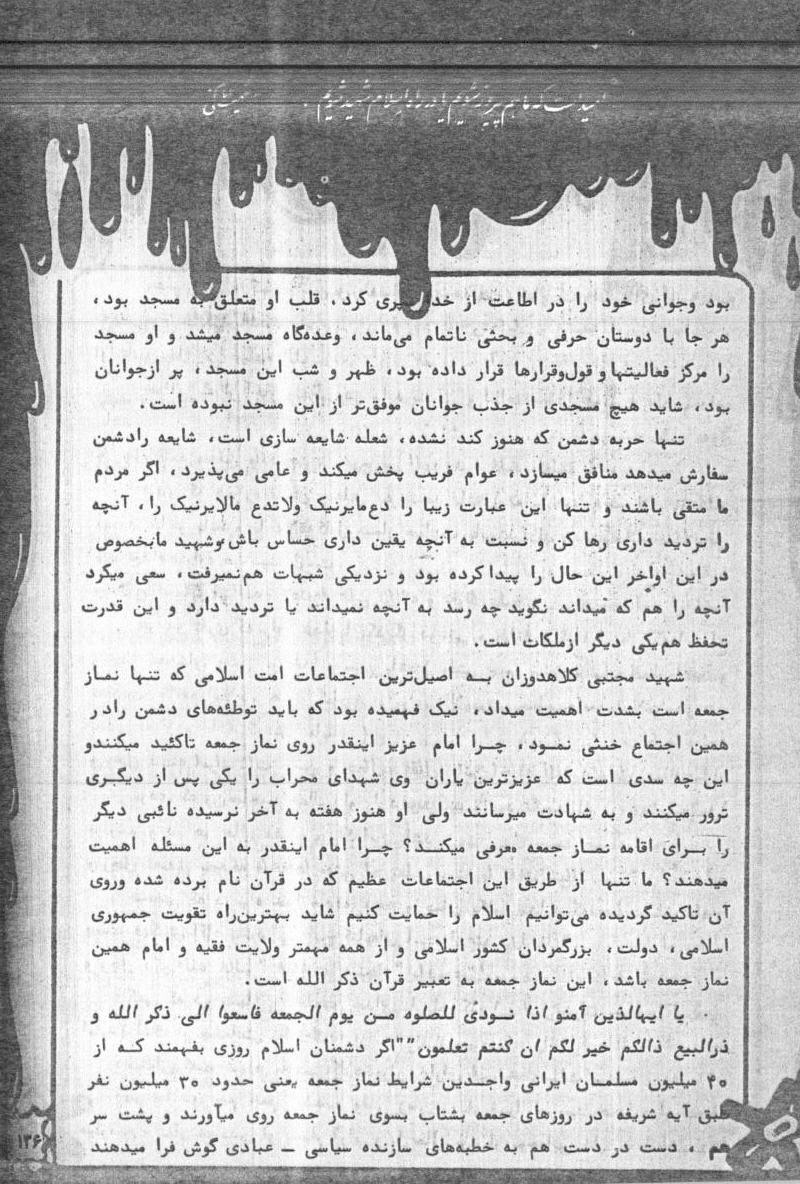 امیداست که ما هم پیروز شویم یا در راه اسلام شهید شویم .
بود وجوانی خود را در اطاعت از خدا سپری کرد. قلب او متعلق به مسجد بود،
هر جا با دوستان حرفی و بحثی ناتمام می‌ماند، وعده‌گاه مسجد میشد و او مسجد
را مرکز فعالیتها و قول‌وقرارها قرار داده بود، ظهر و شب این مسجد، پر ازجوانان
بود، شاید هیچ مسجدی از جذب جوانان موفق‌تر از این مسجد نبوده است.
تنها حربه دشمن که هنوز کند نشده، شعله شایعه سازی است، شایعه رادشمن
سفارش میدهد منافق میسازد، عوام فریب پخش میکند و عامی می‌پذیرد، اگر مردم
ما متقی باشند و تنها این عبارت زیبا را دع‌مایرنیک ولاتدع مالایرنیک را، آنچه
را تردید داری رها کن و نسبت به آنچه یقین داری حساس باش،وشهید مابخصوص
در این اواخر این حال را پیدا کرده بود و نزدیکی شبهات هم‌نمیرفت، سعی میکرد
آنچه را هم که میداند نگوید چه رسد به آنچه نمیداند یا تردید دارد و این قدرت
تحفظ هم‌یکی دیگر ازملکات است.
شهید مجتبی کلاهدوزان بـه اصیل‌ترین اجتماعات امت اسلامی که تنها نماز
جمعه است بشدت اهمیت میداد، نیک فهمیده بود که باید توطئه‌های دشمن رادر
همین اجتماع خنثی نمـود، چـرا امام عزیز اینقدر روی نماز جمعه تاکئید میکنندو
این چه سدی است که عزیزترین یاران وی شهدای محراب را یکی پس از دیگـری
ترور میکنند و به شهادت میرسانند ولی او هنوز هفته به آخر نرسیده نائبی دیگر
را بـرای اقامه نمـاز جمعه معرفی میکنـد؟ چـرا امام اینقدر به این مسئله اهمیت
میدهند؟ ما تنها از طریق این اجتماعات عظیم که در قرآن نام برده شده وروی
آن تاکید گردیده می‌توانیم اسلام را حمایت کنیم شاید بهترین‌راه تقویت جمهوری
اسلامی، دولت، بزرگمردان کشور اسلامی و از همه مهمتر ولایت فقیه و امام همین
نماز جمعه باشد، این نماز جمعه به تعبیر قرآن ذکر الله است.
یا ایهالذین آمنو اذا نـودی للصلوه مـن یوم الجمعه فاسعوا الی ذکر الله و
ذرالبیع ذالکم خیر لکم ان کنتم تعلمون""اگر دشمنان اسلام روزی بفهمند کـه از
۴۰ میلیون مسلمـان ایرانی واجـدین شرایط نماز جمعه یعنی حدود ۳۰ میلیون نفر
طبق آیه شریفه در روزهای جمعه بشتاب بسوی نماز جمعه روی میآورند و پشت سر
هم ، دست در دست هم به خطبه‌های سازنده سیاسی ــ عبادی گوش فرا میدهند
۱۳۶